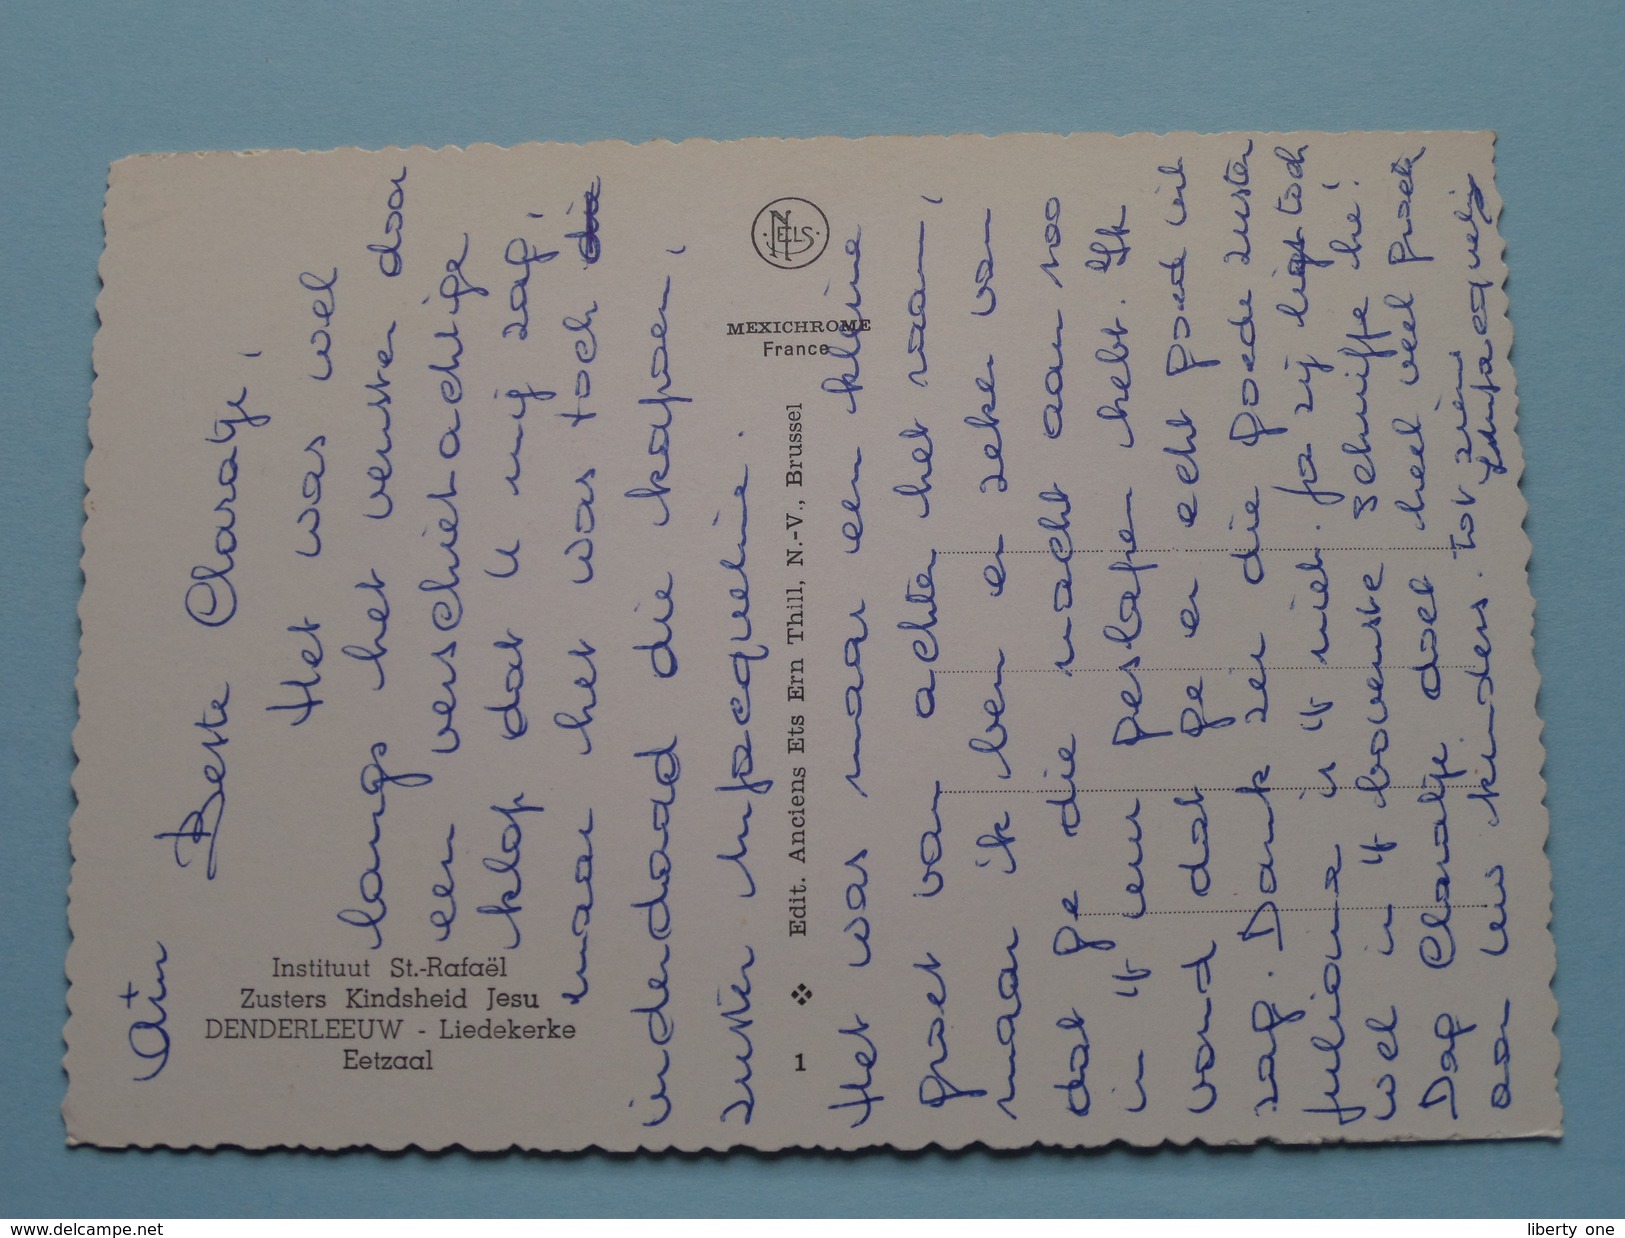 Instituut St.-Rafaël
Zusters Kindsheid Jesu
DENDERLEEUW - Liedekerke
Eetzaal
Beste Claraatje,
Het was wel
langs het venster door
een verschietachtige
klop dat U mij zag,
maar het was toch die
inderdaad die kapoen,
zuster M. Jacqueline.
1 ❖ Edit. Anciens Ets Ern Thill, N.-V., Brussel
NELS
MEXICHROME
France
Het was maar een kleine
groet van achter het raam,
maar ik ben er zeker van
dat ge die nacht aan zoo
in 't uw geslapen hebt. Ik
vond dat ge er echt goed uit
zag. Dank zei die goede zuster
Juliana is 't niet. Ja zij ligt toch
wel in 't bovenste schuifje hé!
Dag Claraatje doet heel veel groeten
aan uw kinders. Tot ziens
Zuster Jacqueline
www.delcampe.net
liberty_one